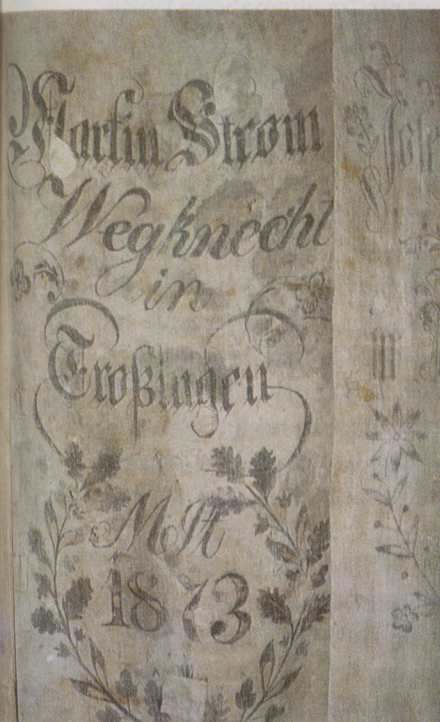 Martin Strom
Wegknecht
in
Troßingen
1873